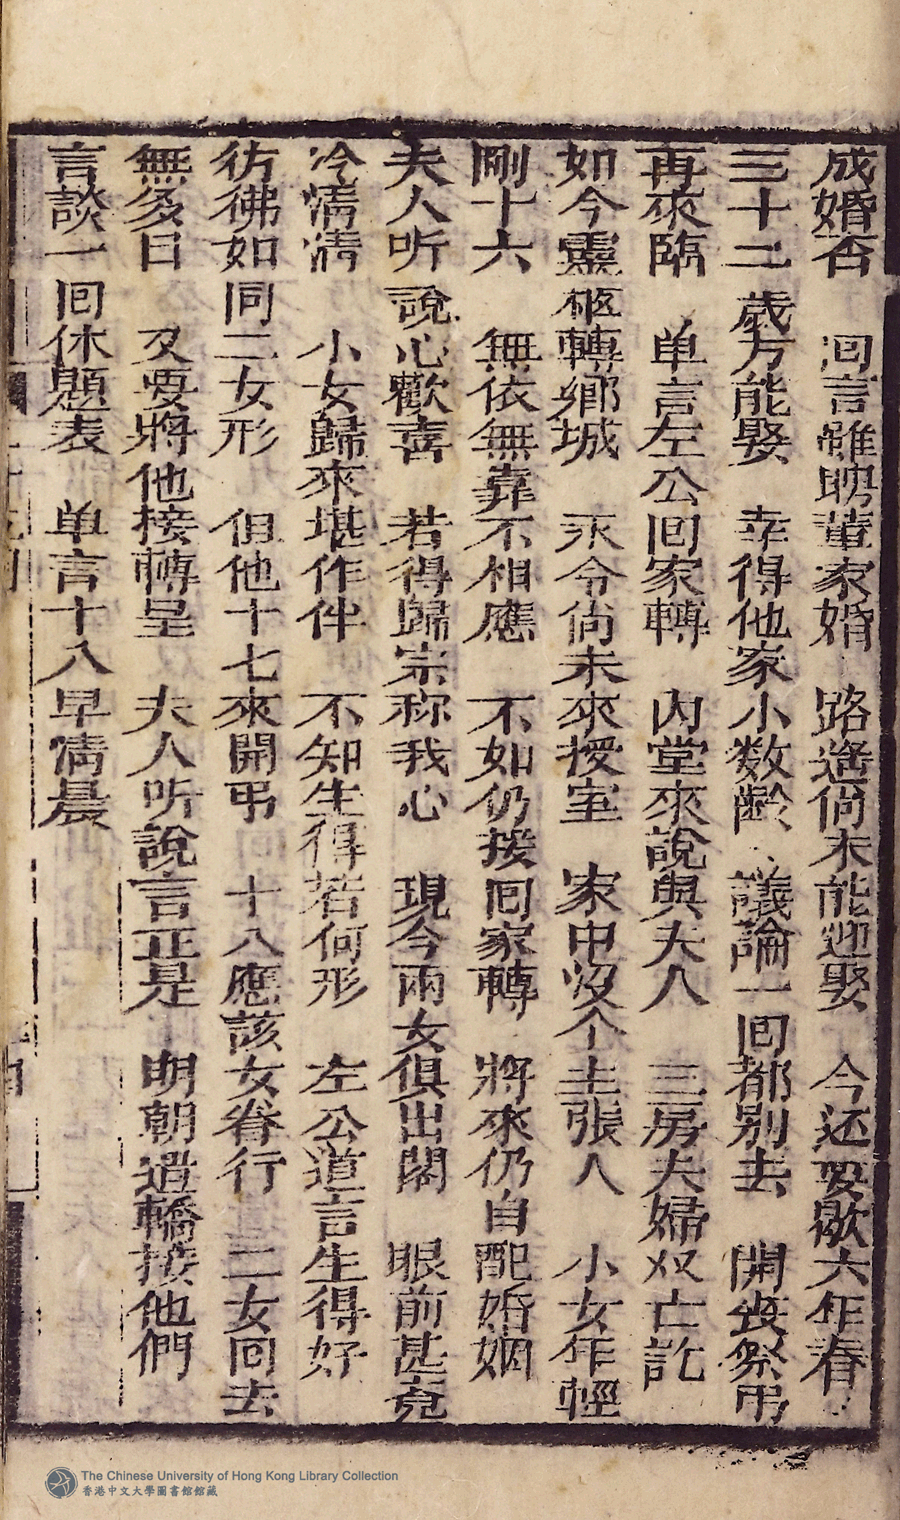 成婚否 洄言雖聘董家婚 路遥尙未能迎娶 今还要歇六年春
三十二歲方能娶 幸得他家小数齡 議論一回都别去 開丧祭弔
再來臨 单言左公回家轉 內堂來說與夫人 三房夫婦双亡訖
如今靈柩轉鄉城 永令尙未來授室 家中没个主張人 小女年輕
剛十六 無依無靠不相應 不如仍接回家轉 將來仍自配婚姻
夫人听說心歡喜 若得歸宗称我心 現今兩女俱出閣 眼前甚竟
冷淸淸 小女歸來堪作伴 不知生得若何形 左公道言生得好
彷彿如同二女形 但他十七來開弔 十八應該女眷行 二女回去
無多日 又要將他接轉呈 夫人听說言正是 明朝遣轎接他們
言談一回休題表 单言十八早淸晨
The Chinese University of Hong Kong Library Collection
香港中文大學圖書館館藏